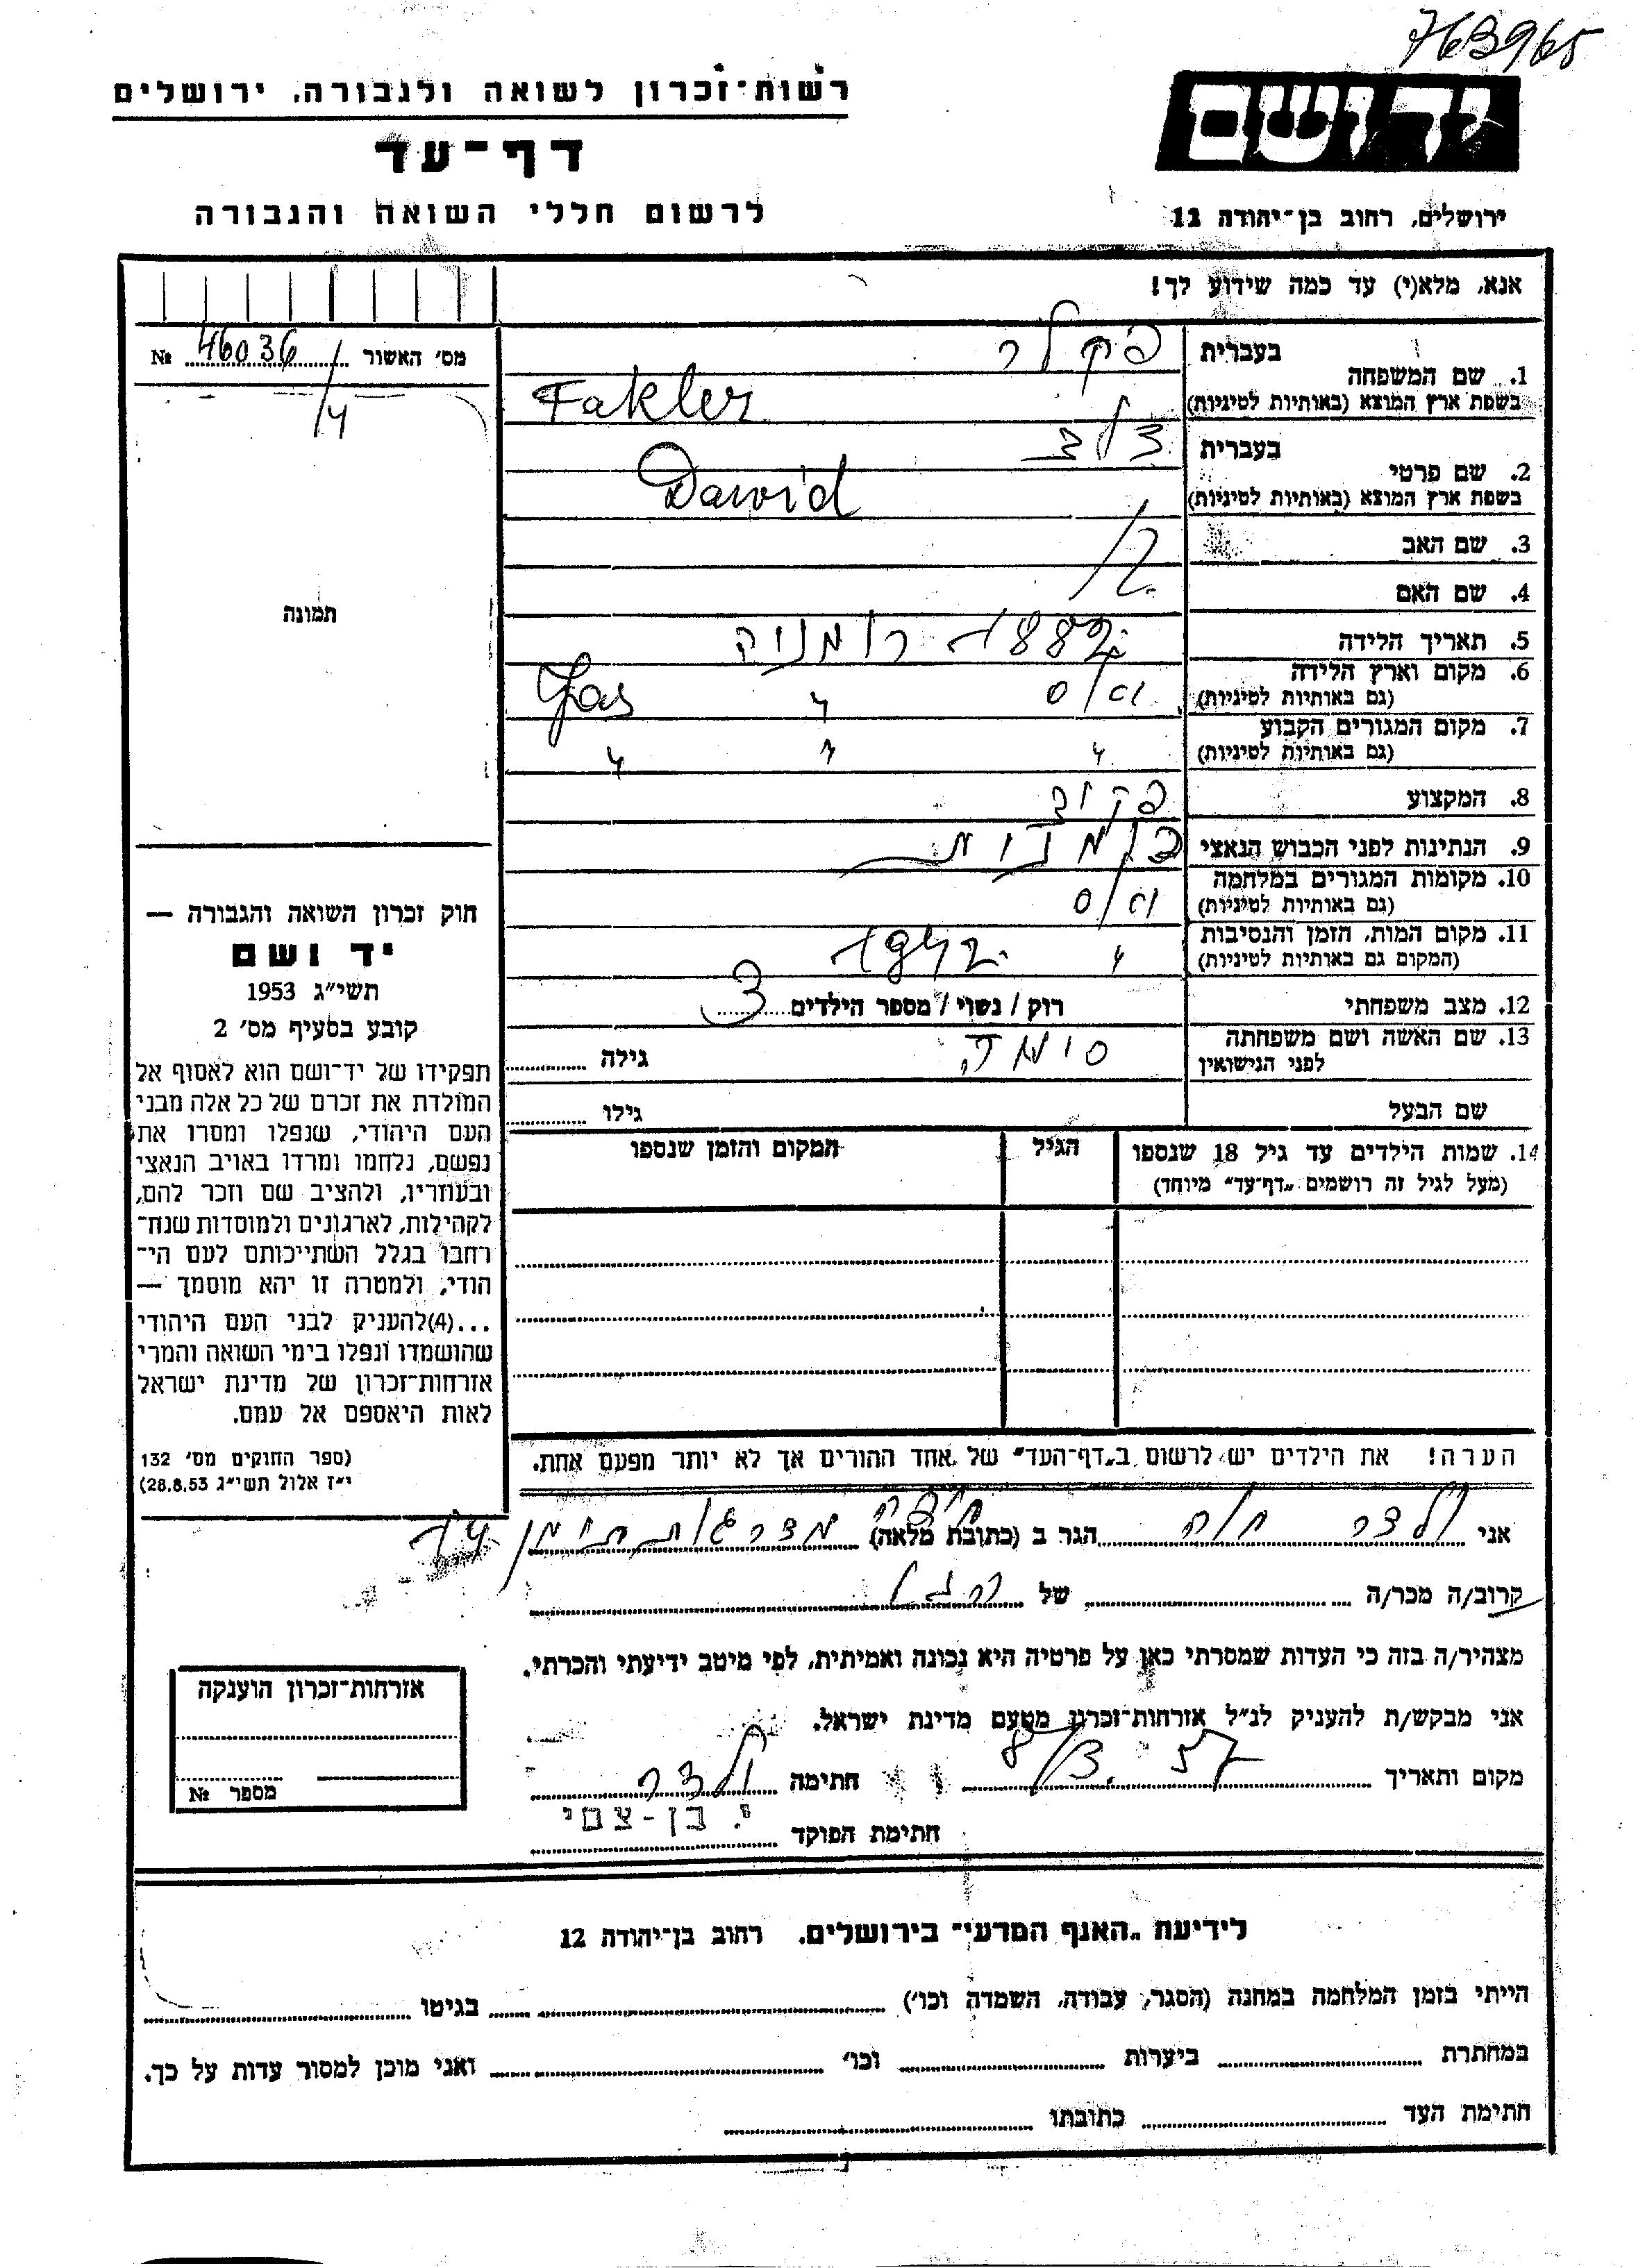 763965
רשות־זכרון לשואה ולגבורה, ירושלים
דף־עד
לרשום חללי השואה והגבורה
יד ושם
ירושלים, רחוב בן־יהודה 12
אנא, מלא(י) עד כמה שידוע לך!
מס׳ האשור 46036 №
/4
תמונה
1. שם המשפחה
בעברית פקלר
בשפת ארץ המוצא (באותיות לטיניות) Fakler
2. שם פרטי
בעברית דוד
בשפת ארץ המוצא (באותיות לטיניות) Dawid
3. שם האב
4. שם האם
5. תאריך הלידה 1882 רומניה
6. מקום וארץ הלידה
(גם באותיות לטיניות) יאס " Jas
7. מקום המגורים הקבוע
(גם באותיות לטיניות) " " "
8. המקצוע פקיד
9. הנתינות לפני הכבוש הנאצי
10. מקומות המגורים במלחמה
(גם באותיות לטיניות) יאס
11. מקום המות, הזמן והנסיבות
(המקום גם באותיות לטיניות) " 1942
12. מצב משפחתי רוק / נשוי / מספר הילדים 3
13. שם האשה ושם משפחתה
לפני הנישואין סימה גילה
שם הבעל גילו
14. שמות הילדים עד גיל 18 שנספו
(מעל לגיל זה רושמים „דף־עד״ מיוחד)
הגיל
המקום והזמן שנספו
הערה! את הילדים יש לרשום ב„דף־העד״ של אחד ההורים אך לא יותר מפעם אחת.
חוק זכרון השואה והגבורה —
יד ושם
תשי״ג 1953
קובע בסעיף מס׳ 2
תפקידו של יד־ושם הוא לאסוף אל
המולדת את זכרם של כל אלה מבני
העם היהודי, שנפלו ומסרו את
נפשם, נלחמו ומרדו באויב הנאצי
ובעוזריו, ולהציב שם וזכר להם,
לקהילות, לארגונים ולמוסדות שנח־
רבו בגלל השתייכותם לעם הי־
הודי, ולמטרה זו יהא מוסמך —
...(4)להעניק לבני העם היהודי
שהושמדו ונפלו בימי השואה והמרי
אזרחות־זכרון של מדינת ישראל
לאות היאספם אל עמם.
(ספר החוקים מס׳ 132
י״ז אלול תשי״ג 28.8.53)
אני ולדר חוה הגר ב (כתובת מלאה) חיפה מדרגות תימן 14
קרוב/ה מכר/ה של
מצהיר/ה בזה כי העדות שמסרתי כאן על פרטיה היא נכונה ואמיתית, לפי מיטב ידיעתי והכרתי.
אני מבקש/ת להעניק לנ״ל אזרחות־זכרון מטעם מדינת ישראל.
מקום ותאריך 8/3. 57 חתימה ולדר
חתימת הפוקד י. בן-צמי
אזרחות־זכרון הוענקה
מספר №
לידיעת „האגף המדעי״ בירושלים. רחוב בן־יהודה 12
הייתי בזמן המלחמה במחנה (הסגר, עבודה, השמדה וכו׳) בגיטו
במחתרת ביערות וכו׳ ואני מוכן למסור עדות על כך.
חתימת העד כתובתו